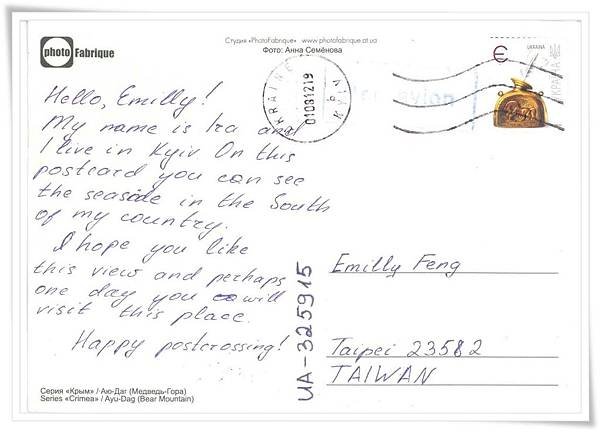 photo Fabrique
Студия «PhotoFabrique» www.photofabrique.at.ua
Фото: Анна Семёнова
Hello, Emilly!
My name is Ira and
I live in Kyiv On this
postcard you can see
the seaside in the South
of my country.
I hope you like
this view and perhaps
one day you will
visit this place.
Happy postcrossing!
UKRAINE
01081219
avion
Є
UKRAINA
УКРАЇНА
UA-325915
Emilly Feng
Taipei 23582
TAIWAN
Серия «Крым» / Аю-Даг (Медведь-Гора)
Series «Crimea» / Ayu-Dag (Bear Mountain)